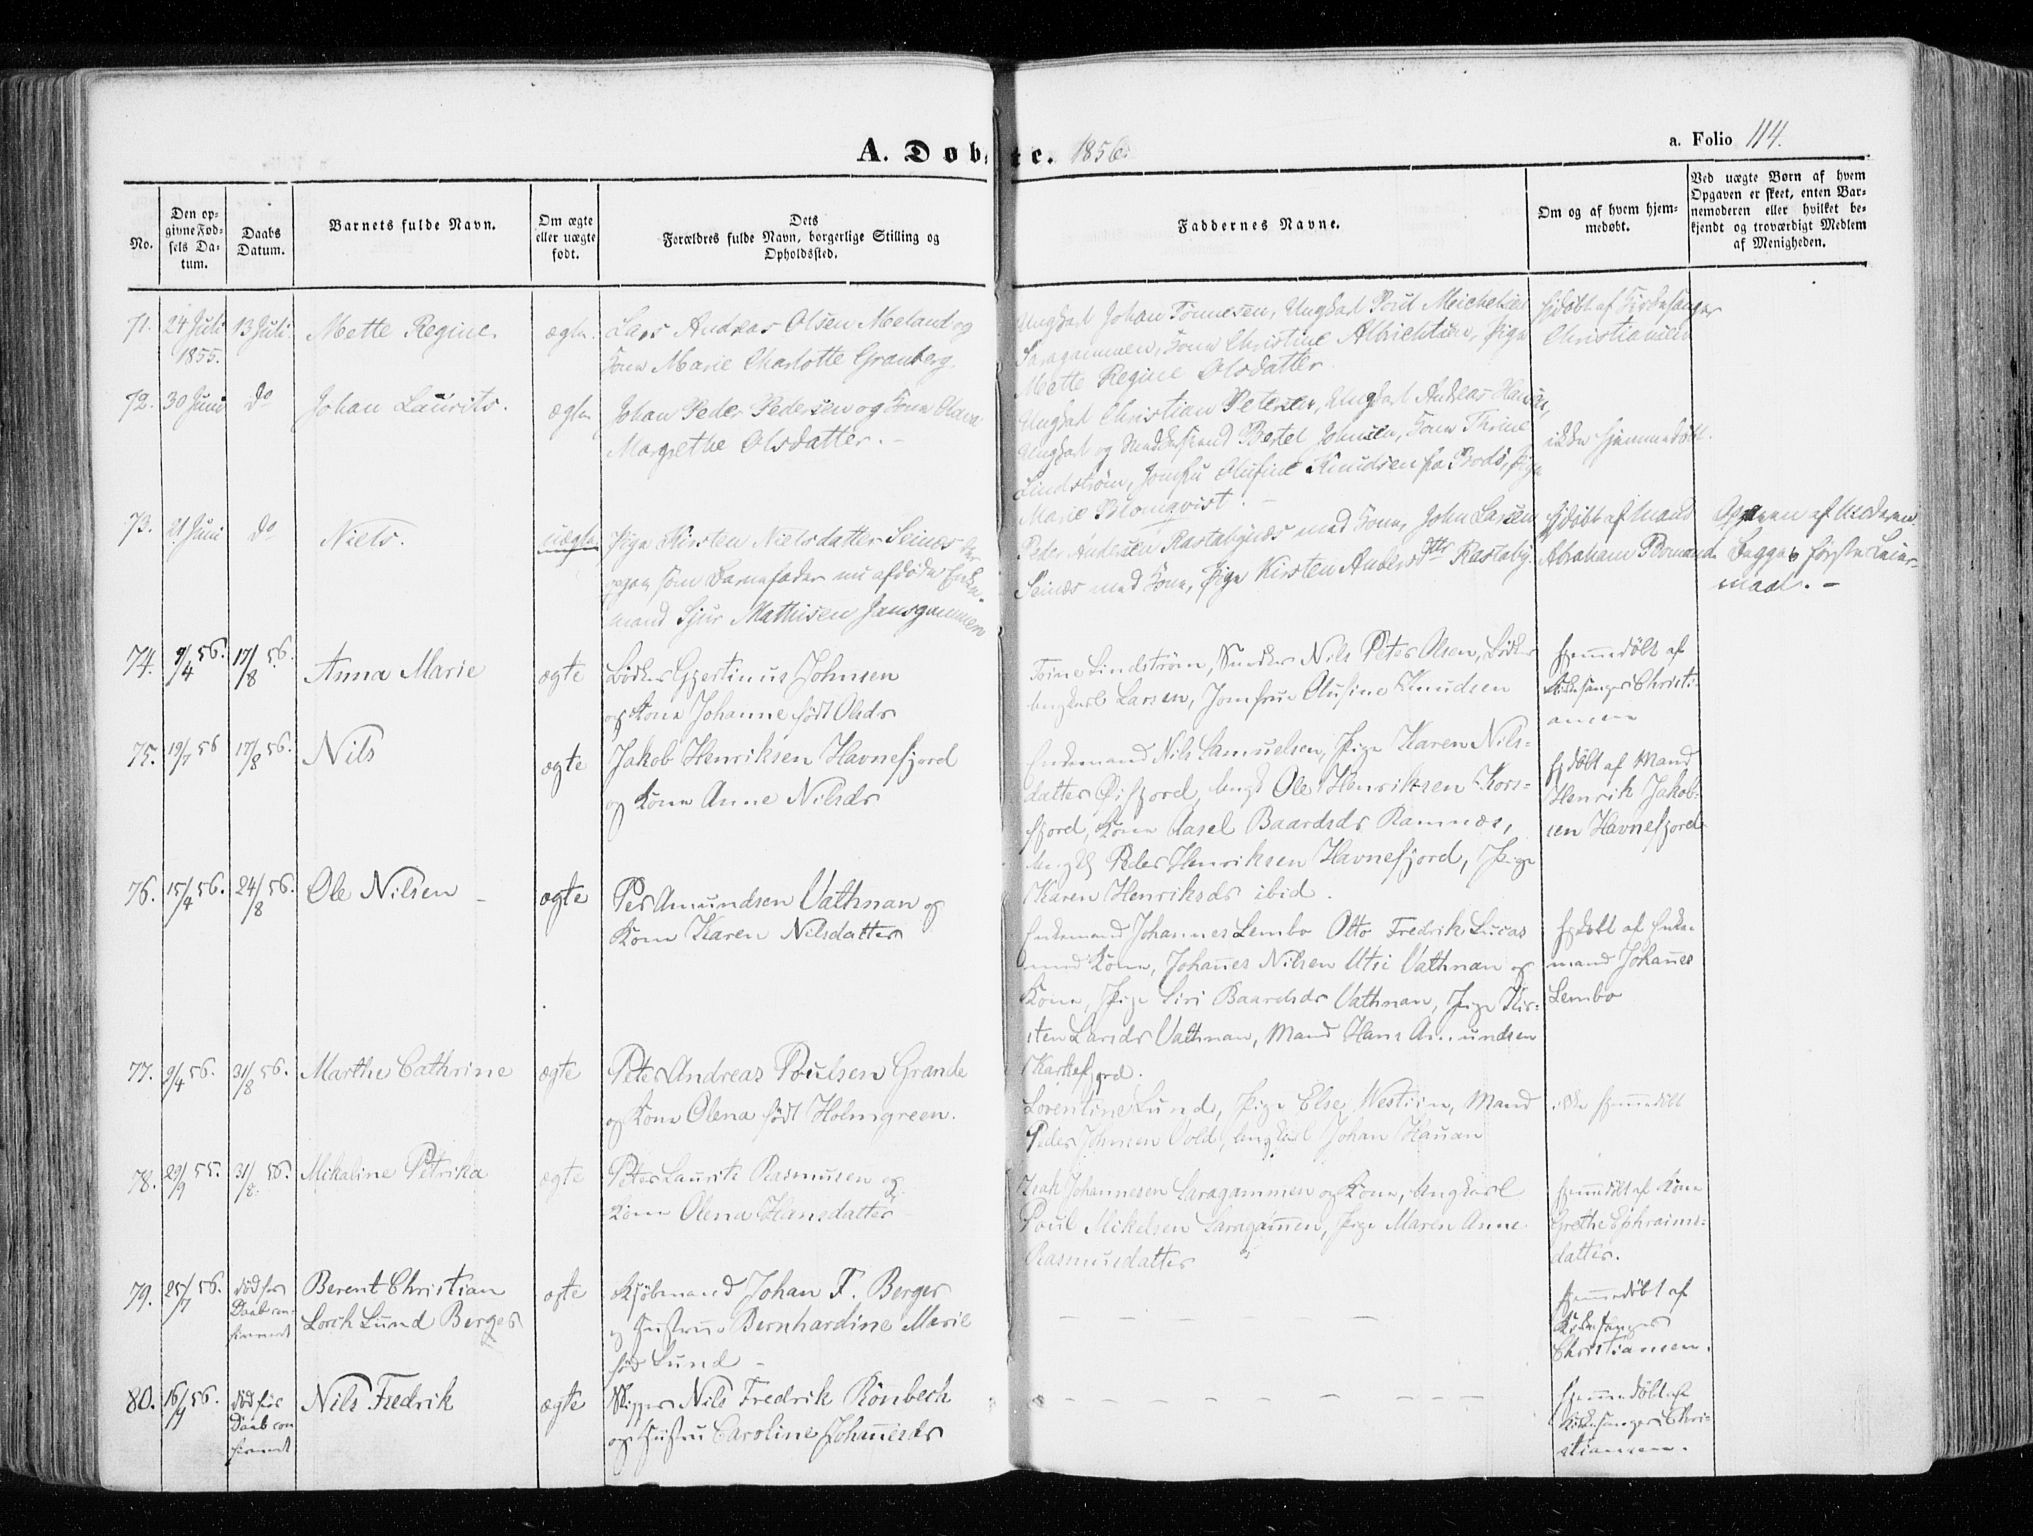 A. Døbte. 1856.
a. Folio 114.
No.
Den opgivne Fødsels Datum.
Daabs Datum.
Barnets fulde Navn.
Om ægte eller uægte født.
Dets Forældres fulde Navn, borgerlige Stilling og Opholdssted.
Faddernes Navne.
Om og af hvem hjemmedøbt.
Ved uægte Børn af hvem Opgaven er skeet, enten Barnemoderen eller hvilket bekjendt og troværdigt Medlem af Menigheden.
71. 24 Juli 1855. 13 Juli Mette Regine. ægte.
Lars Andreas Olsen Meland og
Kone Marie Charlotte Granberg.
Ungkarl Johan Tönnesen, Ungkarl Poul Michelsen
Saragammen, Kone Christine Albrichtsen, Pige
Mette Regine Olsdatter.
hjdöbt af Kirkesanger
Christiansen
72. 30 Juni do Johan Laurits. ægte
Johan Peder Pedersen og Kone Olava
Margrethe Olsdatter. -
Ungkarl Christian Petersen, Ungkarl Andreas Hansen,
Ungkarl og Bertel Johnsen, Kone Trine
Lindström, Jomfru Olufine Knudsen fra Bodö, Pige
Marie Blomqvist. -
ikke hjemmedöbt.
73. 21 Juni do Niels. uægte
Pige Kirsten Nielsdatter Seinæs der
opgav som Barnefader nu afdöde Enke-
mand Sjur Mathisen Jansgammen
Peder Andersen Rastabynæs med Kone, John Larsen
Seinæs med Kone, Pige Kirsten Andersdtr Rastaby.
hjdöbt af Mand
Abraham
Opgaven af Moderen.
Begges förste Leier-
maal. -
74. 9/4 56. 17/8 56. Anna Marie ægte
Bödker Gjertinus Johnsen
og Kone Johanne födt Olsdr
Trine Lindström, Snedker Nils Peter Olsen, Bödker
Larsen, Jomfrue Olufine Knudsen
hjemmedöbt af
Kirkesanger Christi-
ansen
75. 19/7 56 17/8 56. Nils ægte
Jakob Henriksen Havnefjord
og Kone Anne Nilsdr
Enkemand Nils Samuelsen, Pige Karen Nils-
datter Öifjord, Ungk Ole Henriksen Kors-
fjord, Kone Aasel Baardsdr Ramnæs,
Ungk Peder Henriksen Havnefjord, Pige
Karen Henriksdr ibid.
hjdöbt af Mand
Henrik Jakob-
sen Havnefjord
76. 15/4 56. 24/8 56. Ole Nilsen - ægte
Per Amundsen Vathnan og
Kone Karen Nilsdatter
Enkemand Johannes Lembo Otto Fredrik Lucas
med Kone, Johannes Nilsen Utsi Vathnan og
Kone, Pige Siri Baardsdr Vathnan, Pige Kir-
sten Larsdr Vathnan, Mand Hans Amundsen
Karkefjord.
hjdöbt af Enke-
mand Johannes
Lembo
77. 9/4 56. 31/8 56. Marthe Cathrine ægte
Peter Andreas Poulsen Grande
og Kone Olena födt Holmgreen.
Lorentine Lund, Pige Else Westein, Mand
Peder Johnsen Vold, Ungkarl Johan Hauan
ikke hjemmedöbt
78. 29/9 55. 31/8 56. Mikaline Petrika ægte
Peter Laurits Rasmusen og
Kone Olena Hansdatter
Isak Johannesen Saragammen og Kone, Ungkarl
Poul Mikelsen Saragammen, Pige Maren Anne
Rasmusdatter
hjemmedöbt af Kone
Grethe Ephraims-
datter.
79. 25/7 56. död för Daab con-
firmeret
Berent Christian
Lorch Lund Berger ægte
Kjöbmand Johan F. Berger
og Hustrue Bernhardine Marie
föd Lund -
- - - - - - -
hjemmedöbt af
Kirkesanger
Christiansen.
80. 16/7 56. död för
Daab con
firmeret
Nils Fredrik ægte
Skipper Nils Fredrik Rönbech
og Hustru Caroline Johannesdr
- - - - - - -
hjemmedöbt af
Kirkesanger Chri-
stiansen.